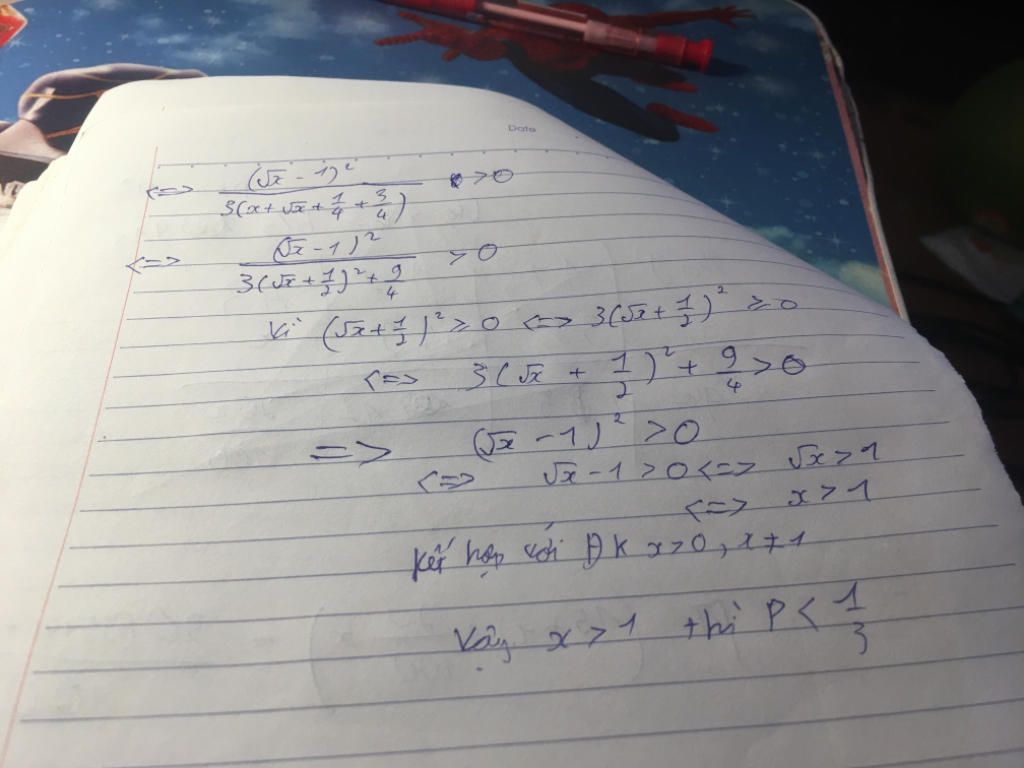 Date
<=> (√x - 1)² / 3(x + √x + 1/4 + 3/4) > 0
<=> (√x - 1)² / 3(√x + 1/2)² + 9/4 > 0
Vì (√x + 1/2)² ≥ 0 <=> 3(√x + 1/2)² ≥ 0
<=> 3(√x + 1/2)² + 9/4 > 0
=> (√x - 1)² > 0
<=> √x - 1 > 0 <=> √x > 1
<=> x > 1
Kết hợp với ĐK x > 0, x ≠ 1
Vậy x > 1 thì P < 1/3